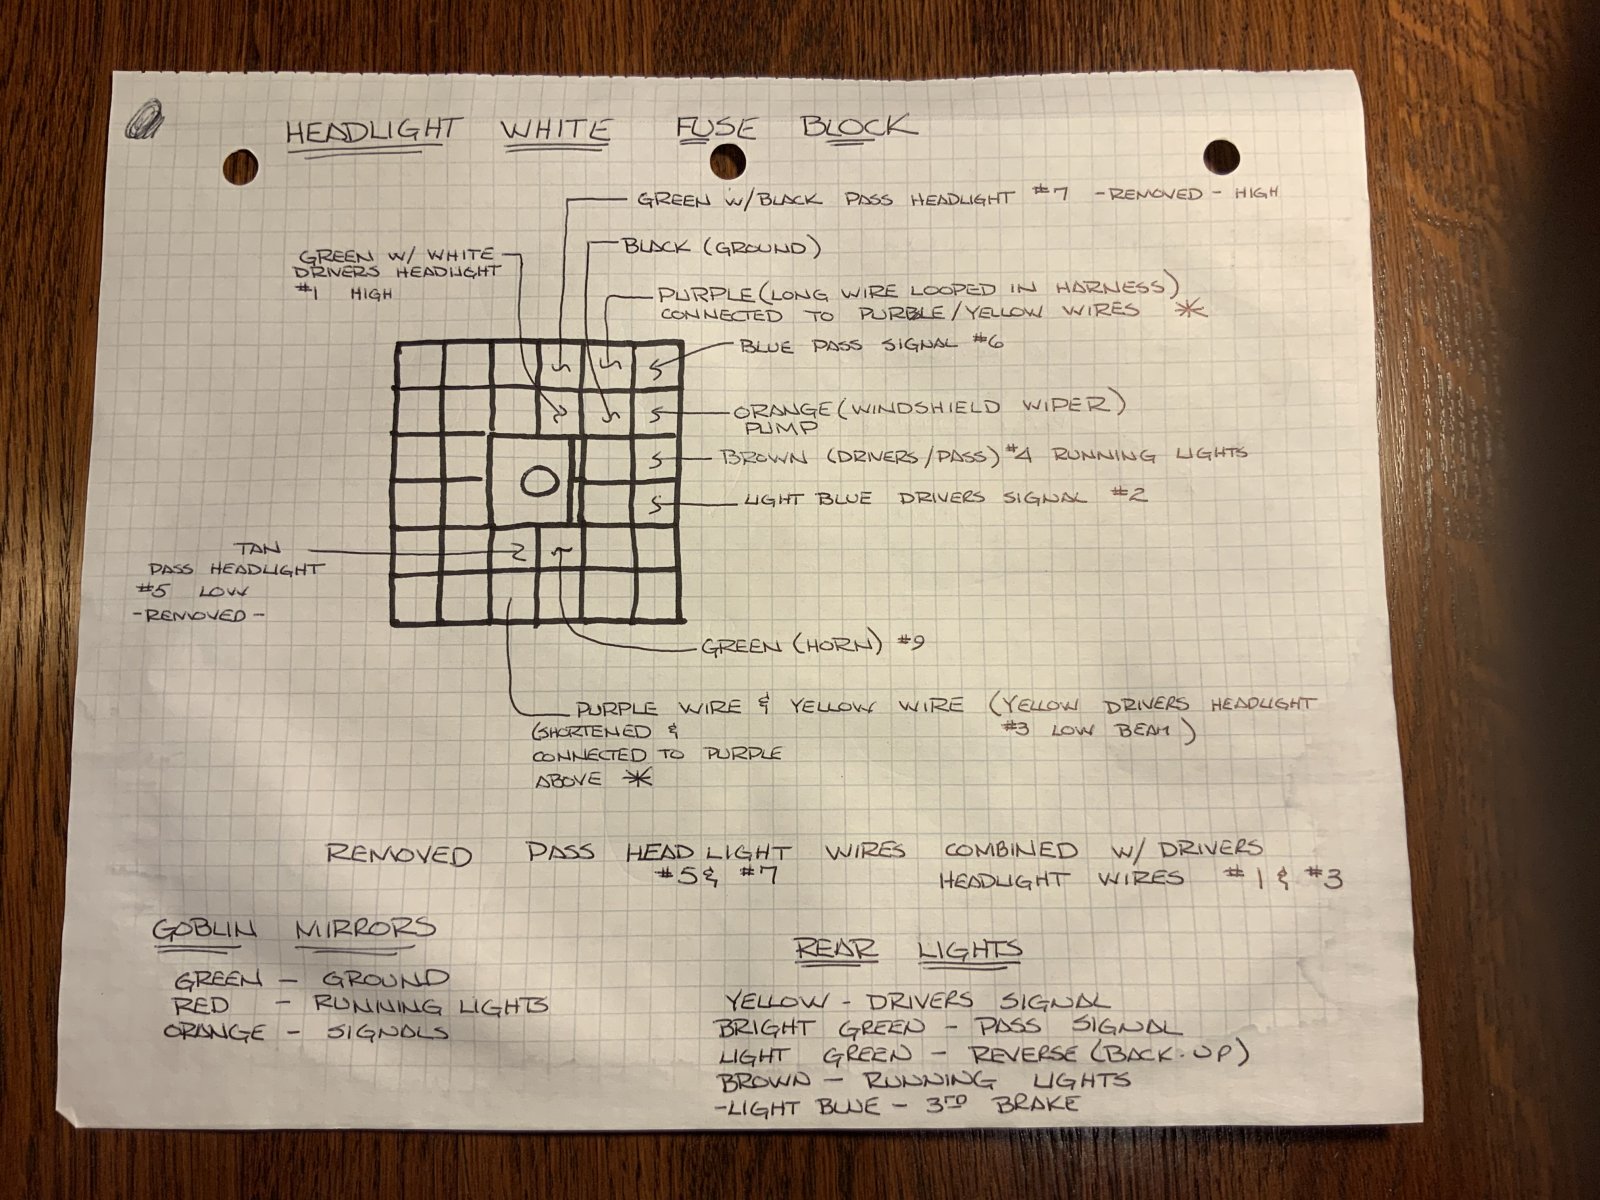 HEADLIGHT WHITE FUSE BLOCK
GREEN W/BLACK PASS HEADLIGHT #7 -REMOVED- HIGH
BLACK (GROUND)
GREEN W/ WHITE
DRIVERS HEADLIGHT
#1 HIGH
PURPLE (LONG WIRE LOOPED IN HARNESS)
CONNECTED TO PURPLE/YELLOW WIRES *
BLUE PASS SIGNAL #6
ORANGE (WINDSHIELD WIPER)
PUMP
BROWN (DRIVERS/PASS) #4 RUNNING LIGHTS
LIGHT BLUE DRIVERS SIGNAL #2
TAN
PASS HEADLIGHT
#5 LOW
-REMOVED-
GREEN (HORN) #9
PURPLE WIRE & YELLOW WIRE (YELLOW DRIVERS HEADLIGHT
#3 LOW BEAM)
(SHORTENED &
CONNECTED TO PURPLE
ABOVE *
REMOVED PASS HEAD LIGHT WIRES COMBINED W/ DRIVERS
#5 & #7 HEADLIGHT WIRES #1 & #3
GOBLIN MIRRORS
GREEN - GROUND
RED - RUNNING LIGHTS
ORANGE - SIGNALS
REAR LIGHTS
YELLOW - DRIVERS SIGNAL
BRIGHT GREEN - PASS SIGNAL
LIGHT GREEN - REVERSE (BACK-UP)
BROWN - RUNNING LIGHTS
-LIGHT BLUE - 3RD BRAKE